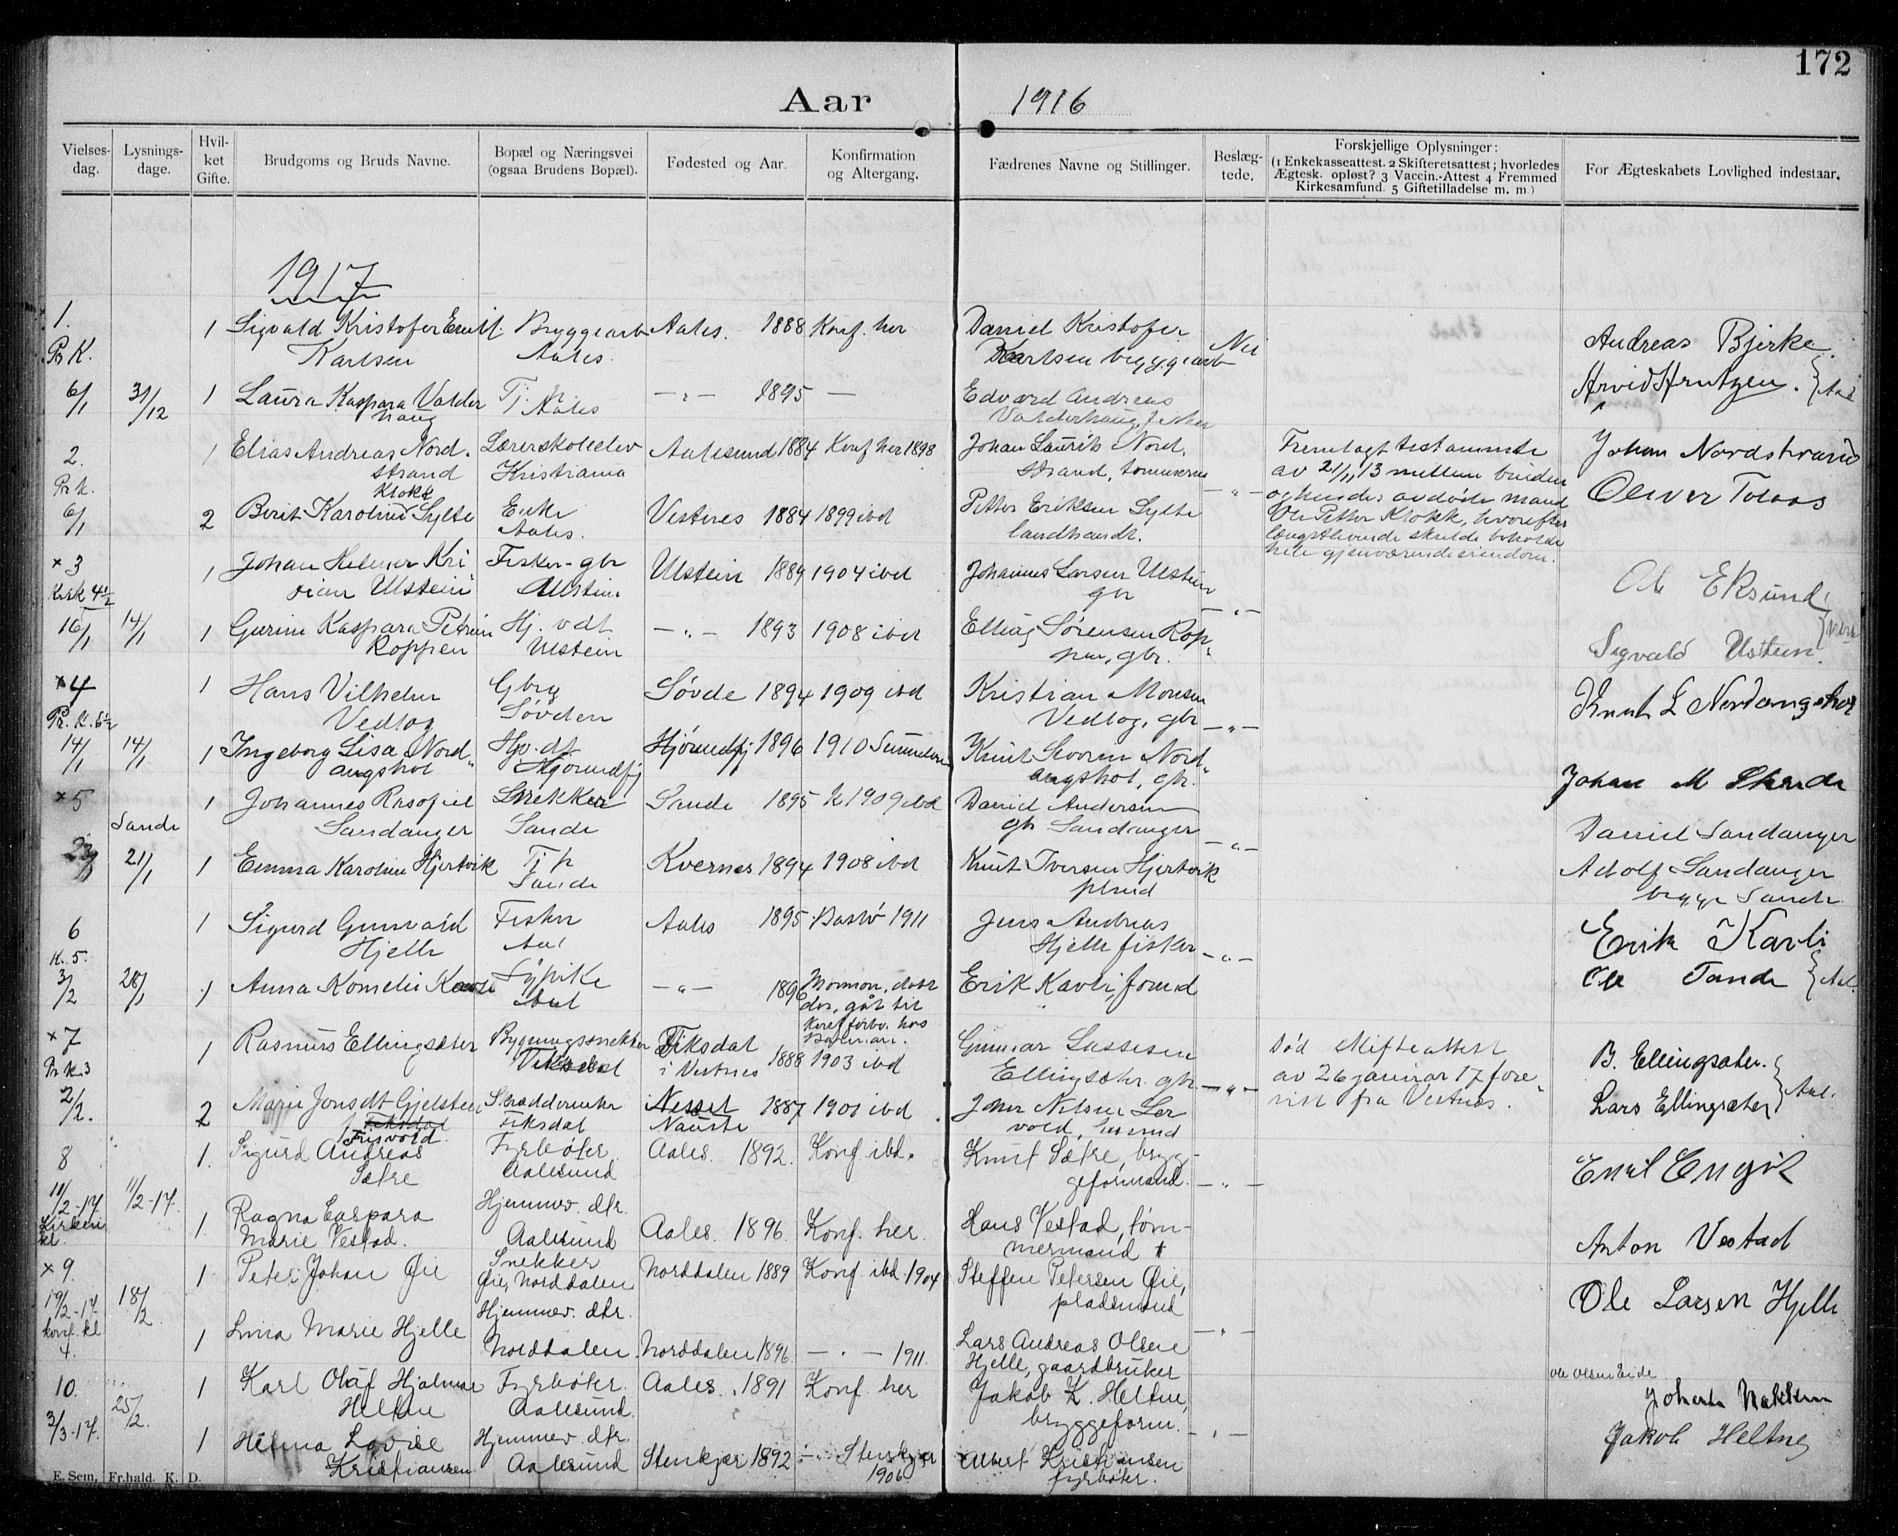 172
Aar 1916
Vielsesdag. Lysningsdage. Hvilket Gifte. Brudgoms og Bruds Navne. Bopæl og Næringsvei (ogsaa Brudens Bopæl). Fødested og Aar. Konfirmation og Altergang. Fædrenes Navne og Stillinger. Beslægtede. Forskjellige Oplysninger: (1 Enkekasseattest. 2 Skifteretsattest; hvorledes Ægtesk. opløst? 3 Vaccin.-Attest 4 Fremmed Kirkesamfund. 5 Giftetilladelse m. m) For Ægteskabets Lovlighed indestaar.
1917
1. 1 Sigvald Kristofer Emil Bryggearb Aales. 1888 Konf. her Daniel Kristofer Nei Andreas Bjerke
Pr K. Karlsen Aales. Karlsen bryggearb
6/1 31/12 1 Laura Kaspara Valder Tj. p —"— 1895 — Edvard Andreas Arvid Arntzen. Aal
haug Aales Valderhaug, fisker
2. 1 Elias Andreas Nord- Lærerskoleelev Aalesund 1884 Konf her 1898 Johan Laurits Nord- Fremlagt testamente Johan Nordstrand
Pr k. strand Kristiania strand, tømmerm —"— av 21/11 13 mellem bruden
Klokk og hendes avdøde mand Oliver Tolaas
6/1 2 Berit Karoline Sylte Enke Vestnes 1884 1899 ibd Petter Eriksen Sylte Ole Petter Klokk, hvorefter
Aales. landhandl. længstlevende skulde beholde
hele gjenværende eiendom.
×3 1 Johan Helmer Kri Fisker-gbr Ulstein 1889 1904 ibd Johannes Larsen Ulstein Ole Eksund
Kirk 4½ sian Ulstein Ulstein gbr —"—
16/1 14/1 1 Gurine Kaspara Petrine Hj. v dt —"— 1893 1908 ibd Elling Sørensen Rop-
Roppen Ulstein pen, gbr. Sigvald Ulstein.
×4 1 Hans Vilhelm Gbrg Søvde 1894 1909 ibd Kristian Monsen Knut L Nordangshol
Pr. K. 6½ Vedlog Søvden Vedlog, gbr —"—
14/1 14/1 1 Ingeborg Lisa Nord- Hjv. dt Hjørundfj 1896 1910 Knut Nord-
angshol Hjørundfj angshol, gbr.
×5 1 Johannes Rasofiel Snekker Sande 1895 k 1909 ibd Daniel Andersen Johan M
Sande Sandanger Sande gbr Sandanger —"— Daniel Sandanger
21/1 1 Emma Karoline Hjertvik Tj p Kvernes 1894 1908 ibd Knut Iversen Hjertvik Adolf Sandanger
Sande plmd begge Sande.
6 1 Sigurd Gunvald Fisker Aales 1895 Bastø 1911 Jens Andreas Erik Kavli
K. 5. Hjelle Aal Hjelle fisker —"—
3/2 28/1 1 Anna Kornelie Kavli Sypike —"— Mormon, Erik Kavli, formd Ole Tande Aal.
Aal går til
×7 1 Rasmus Ellingsæter Bygningssnekker Fiksdal Gunnar Lassesen Død skifteattest B. Ellingsæter.
Pr k. 3 Fiksdal i Vestnes 1888 1903 ibd Ellingsæter. gbr. —"— av 26 januar 17 fore- Aal.
2/2. 2 Marie Jonsdt Gjelsten Skrædderenke Nesset 1887 1901 ibd. Nilsen Ler vist fra Vestnes. Lars Ellingsæter
Fiksdal Fiksdal Nauste vold,
Frisvold.
8 1. Sigurd Andreas Fyrbøter. Aales. 1892. Konf. ibd. Knut Sætre, brygg- Emil Engvik
Sætre Aalesund geformand. —"—
11/2-17. 11/2-17. 1 Ragna Kaspara Hjemmev. dtr. Aales. 1896. Konf. her. Hans Vestad, tøm- Anton Vestad
Kirken kl. Marie Vestad. Aalesund mermand †
×9. 1 Peter Johan Øie Snekker Norddalen 1889 Konf. ibd. 1904 Steffen Petersen Øie, Ole Larsen Hjelle
Øie, Norddalen pladsmand
19/2-17. 18/2. 1 Lina Marie Hjelle Hjemmev. dtr. Norddalen 1896. —"— 1911. Lars Andreas Olsen —"—
konf. kl 4. Norddalen. Hjelle, gaardbruker
10. 1 Karl Olaf Hjalmar Fyrbøter. Aales. 1891 Konf. her Jakob K. Heltne, Ole Olsen Eide
25/2. Heltne Aalesund. bryggeform. —"—
3/3-17. 1 Helma Lovise Hjemmev. dtr. Stenkjær 1892 —"— Stenkjær 1906 Albert Kristiansen Jakob Heltne
Kristiansen. Aalesund fyrbøter.
E. Sem, Fr.hald. K. D.